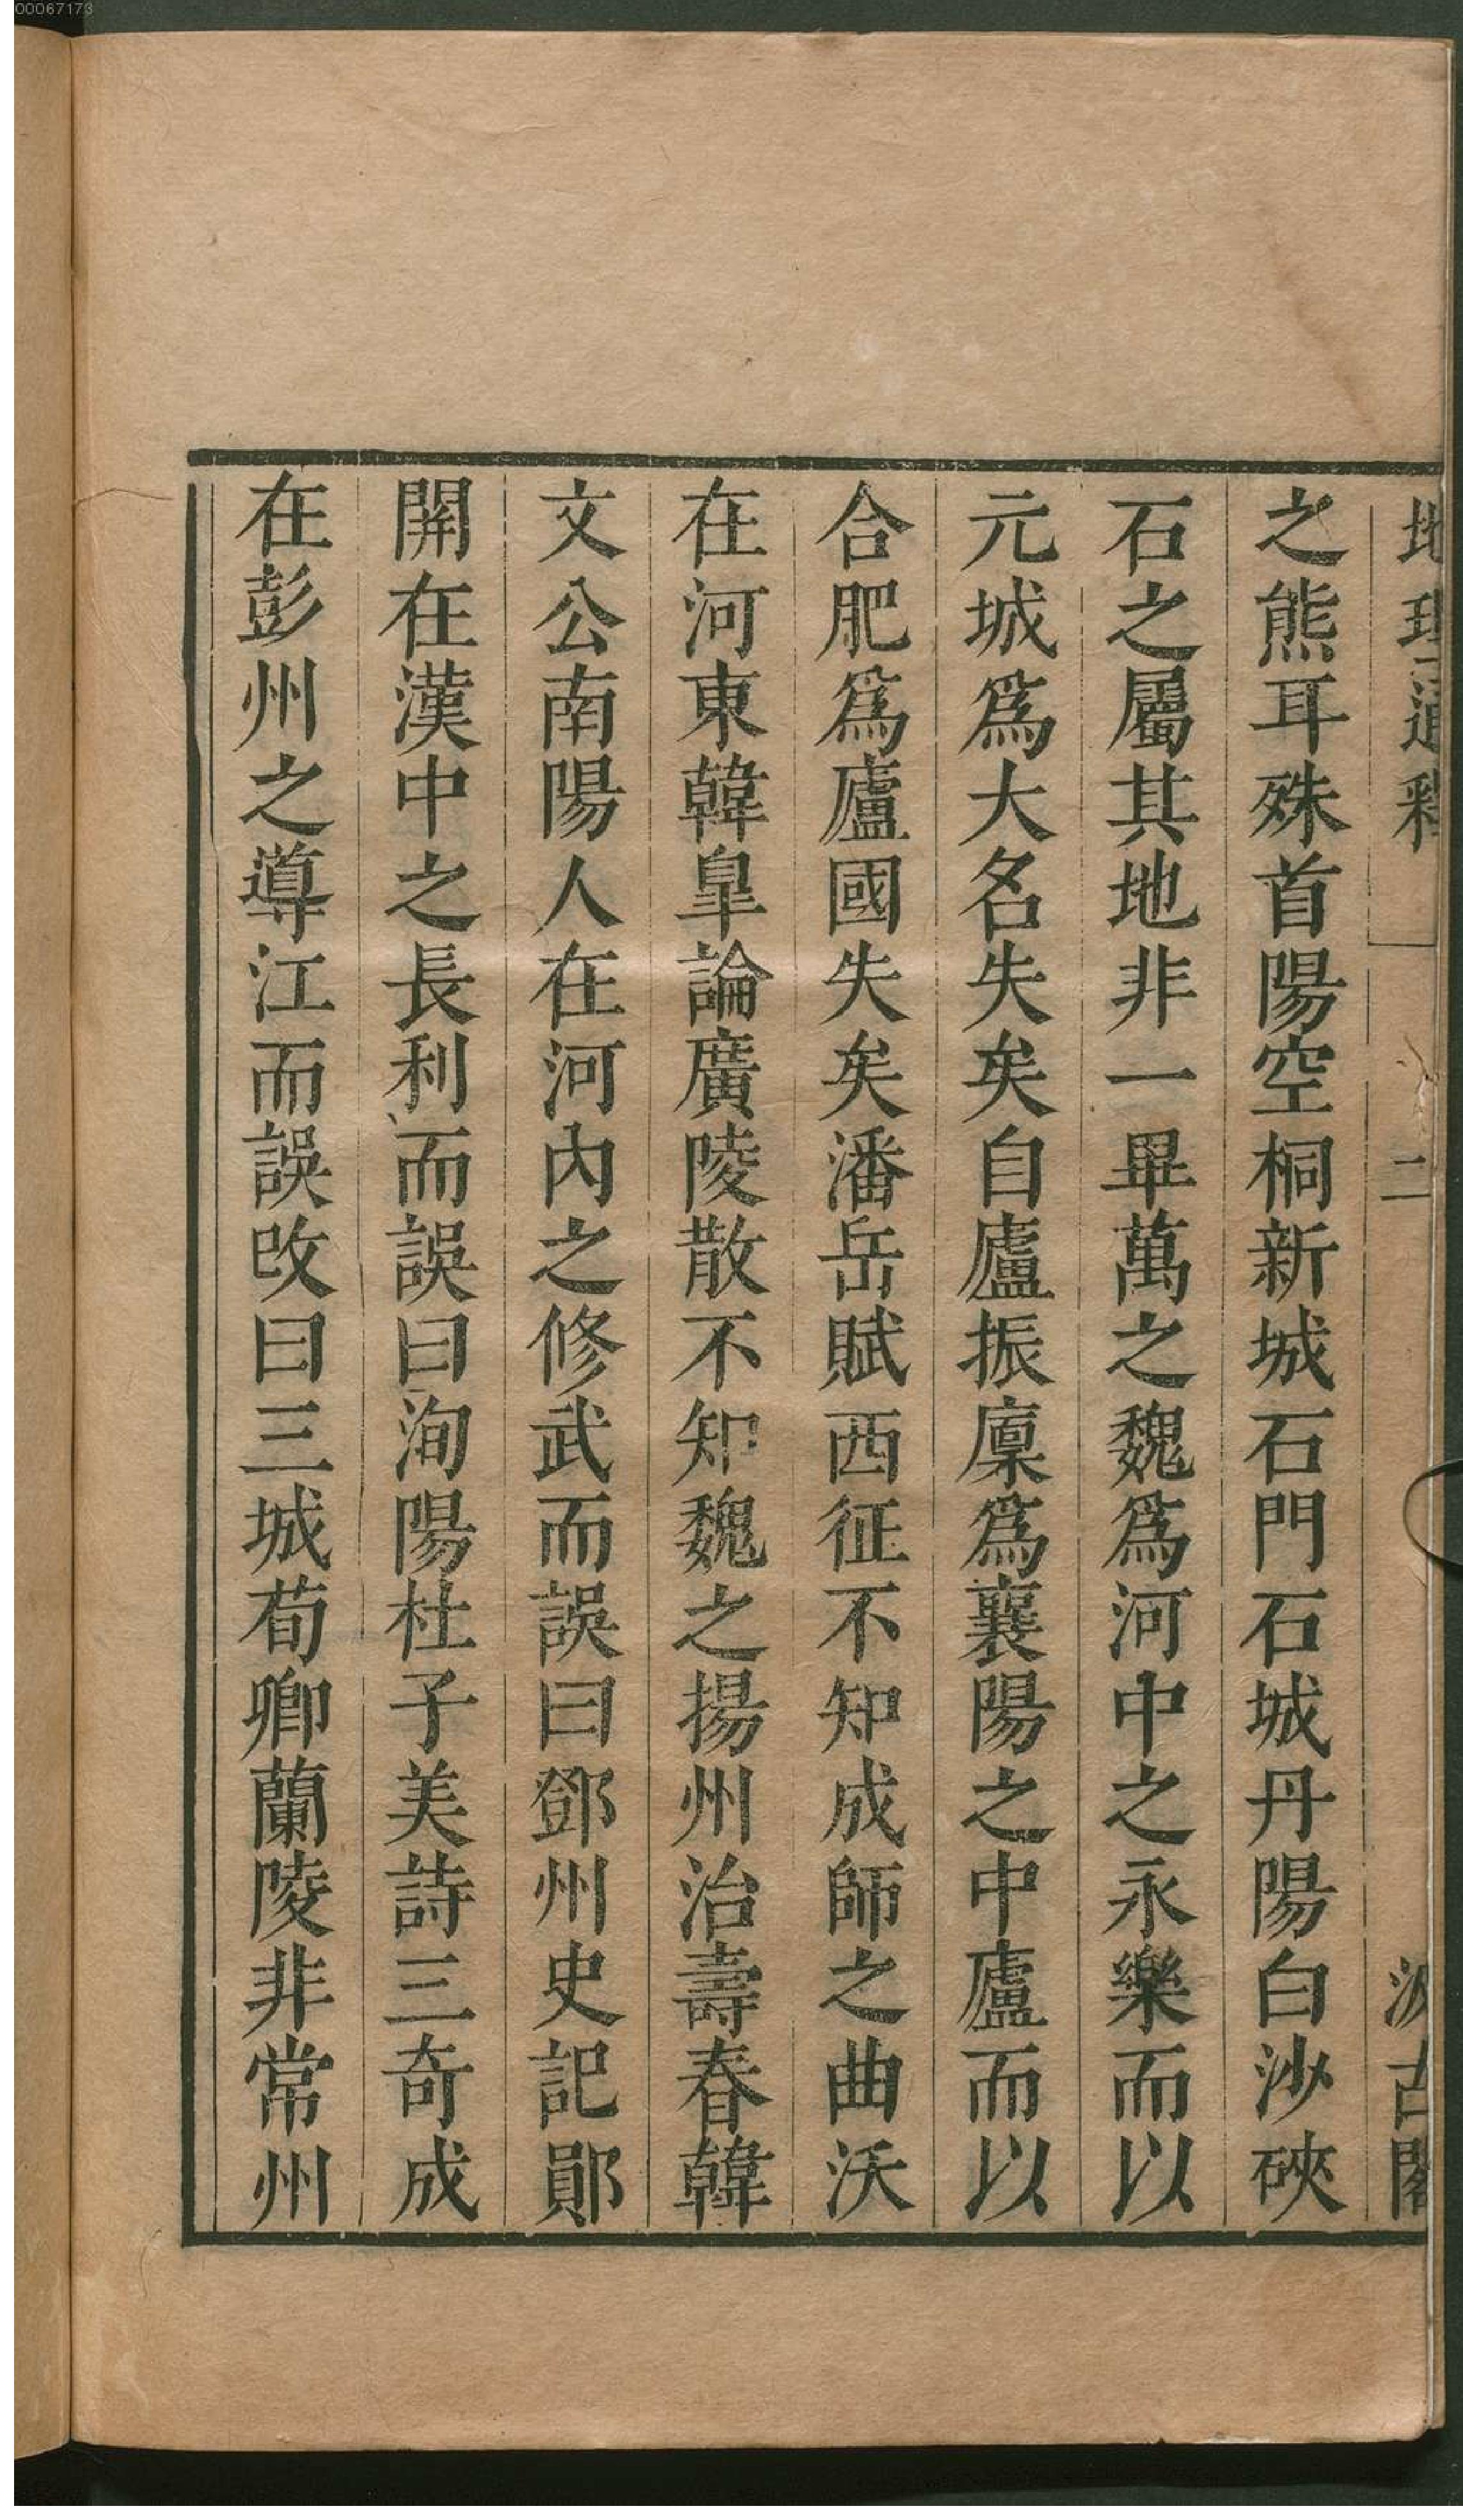 00067173
地理通釋 二 汲古閣
之熊耳殊首陽空桐新城石門石城丹陽白沙硤
石之屬其地非一畢萬之魏爲河中之永樂而以
元城爲大名失矣自廬振廩爲襄陽之中廬而以
合肥爲廬國失矣潘岳賦西征不知成師之曲沃
在河東韓皐論廣陵散不知魏之揚州治壽春韓
文公南陽人在河內之修武而誤曰鄧州史記鄖
開在漢中之長利而誤曰洵陽杜子美詩三奇成
在彭州之導江而誤改曰三城荀卿蘭陵非常州